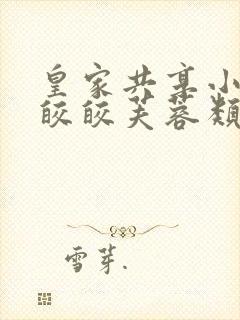 皇家共享小
皎皎芙蓉类
雪芽.